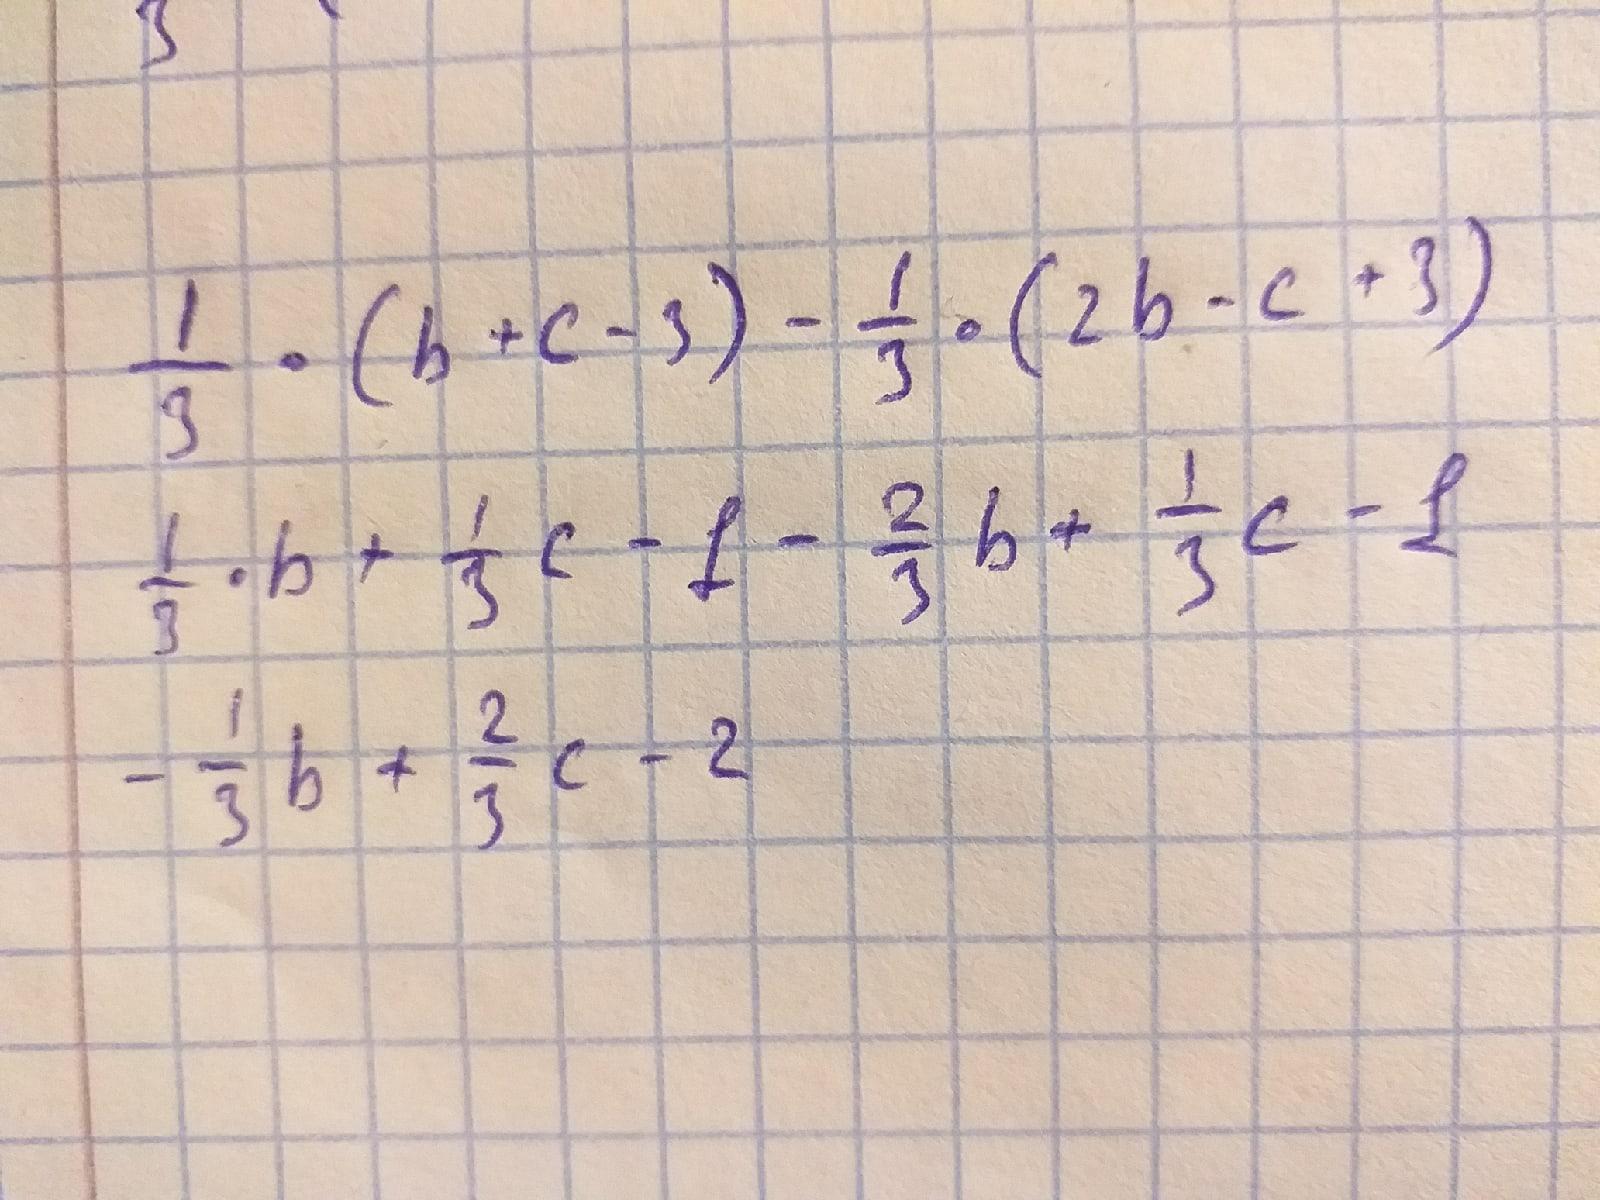 3
1/3 · (b + c - 3) - 1/3 · (2b - c + 3)
1/3 · b + 1/3 c - 1 - 2/3 b + 1/3 c - 1
- 1/3 b + 2/3 c - 2